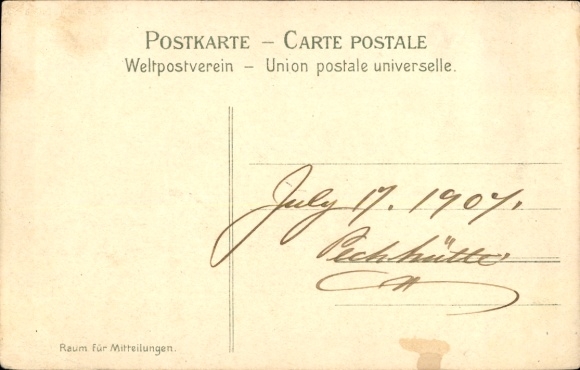 POSTKARTE – CARTE POSTALE
Weltpostverein – Union postale universelle.
July 17. 1907.
Pechhütte.
Raum für Mitteilungen.